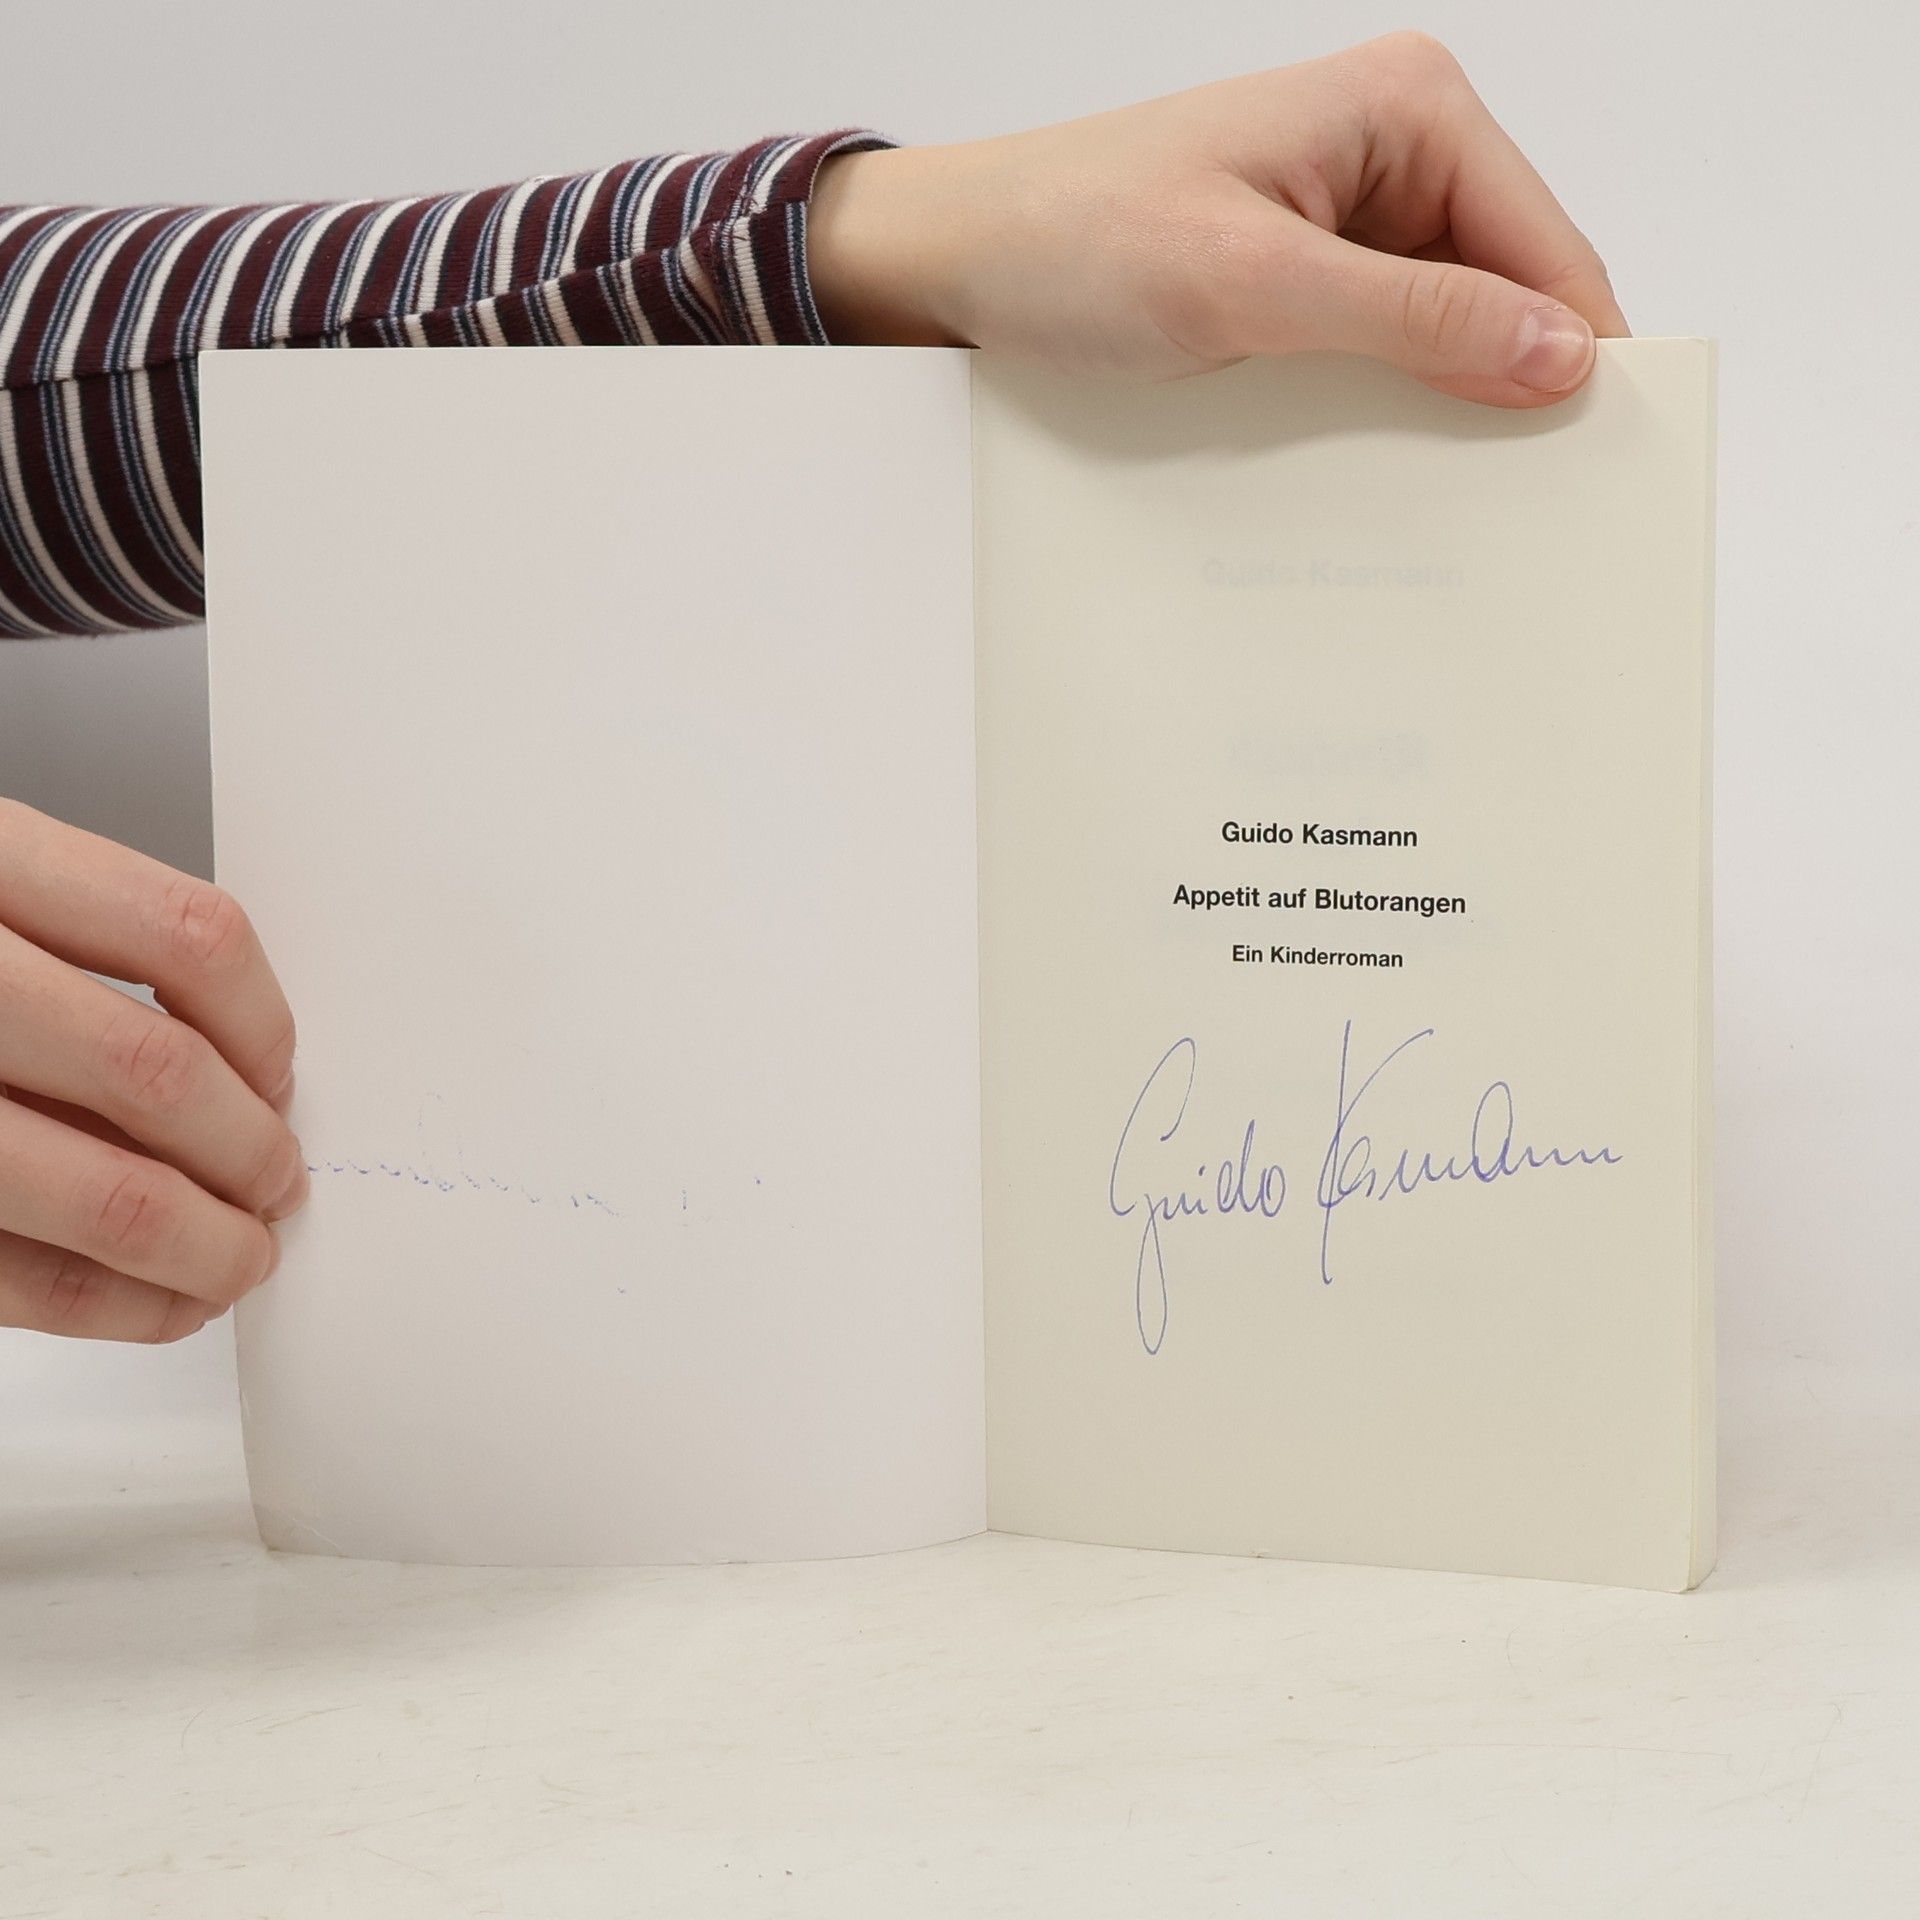 Guido Kasmann
Guido Kasmann
Appetit auf Blutorangen
Ein Kinderroman
Guido Kasmann